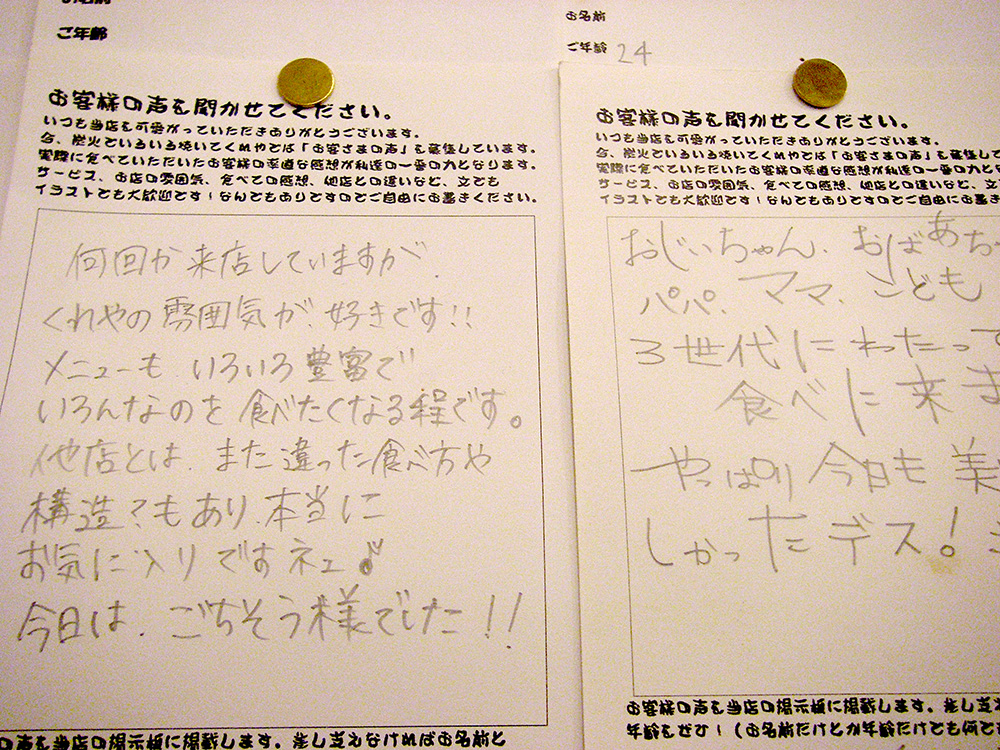 ご年齢
お客様の声を聞かせてください。
いつも当店を可愛がっていただきありがとうございます。
今、炭火でいろいろ焼いてくれやでは「お客さまの声」を募集しています。
実際に食べていただいたお客様の率直な感想が私達の一番の力となります。
サービス、お店の雰囲気、食べての感想、他店との違いなど、文でも
イラストでも大歓迎です!なんでもありですのでご自由にお書きください。
何回か来店していますが、
くれやの雰囲気が、好きです!!
メニューも いろいろ豊富で
いろんなのを 食べたくなる程です。
他店とは、また違った食べ方や
構造?もあり、本当に
お気に入りですネェ♪
今日は、ごちそう様でした!!
の声を当店の掲示板に掲載します。差し支えなければお名前と
お名前
ご年齢 24
お客様の声を聞かせてください。
いつも当店を可愛がっていただきありがとうございます。
今、炭火でいろいろ焼いてくれやでは「お客さまの声」を募集して
実際に食べていただいたお客様の率直な感想が私達の一番の力とな
サービス、お店の雰囲気、食べての感想、他店との違いなど、文
イラストでも大歓迎です!なんでもありですのでご自由にお書き
おじいちゃん、おばあち
パパ、ママ、こども
3世代にわたって
食べに来ま
やっぱり今日も美
しかったデス!
お客様の声を当店の掲示板に掲載します。差し支え
年齢をぜひ!(お名前だけとか年齢だけでも何で